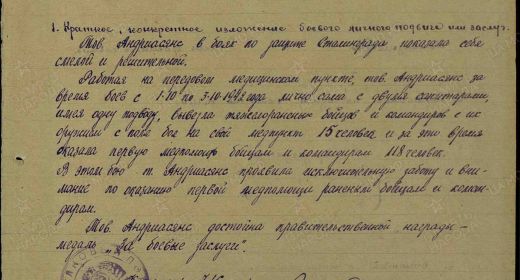 1. Краткое, конкретное изложение боевого личного подвига или заслуг.
Тов. Андриасянс в боях по защите Сталинграда, показала себя
смелой и решительной.
Работая на передовом медицинском пункте, тов. Андриасянс за
время боев с 1-10 по 3-10-1942 года лично сама с двумя санитарами,
имея одну подводу, вывезла тяжелораненых бойцов и командиров с их
оружием с поля боя на свой медпункт 15 человек и за это время
оказала первую медпомощь бойцам и командирам 118 человек.
В этом бою т. Андриасянс проявила исключительную заботу и вни-
мание по оказанию первой медпомощи раненым бойцам и коман-
дирам.
Тов. Андриасянс достойна правительственной награды-
медаль "За боевые заслуги".